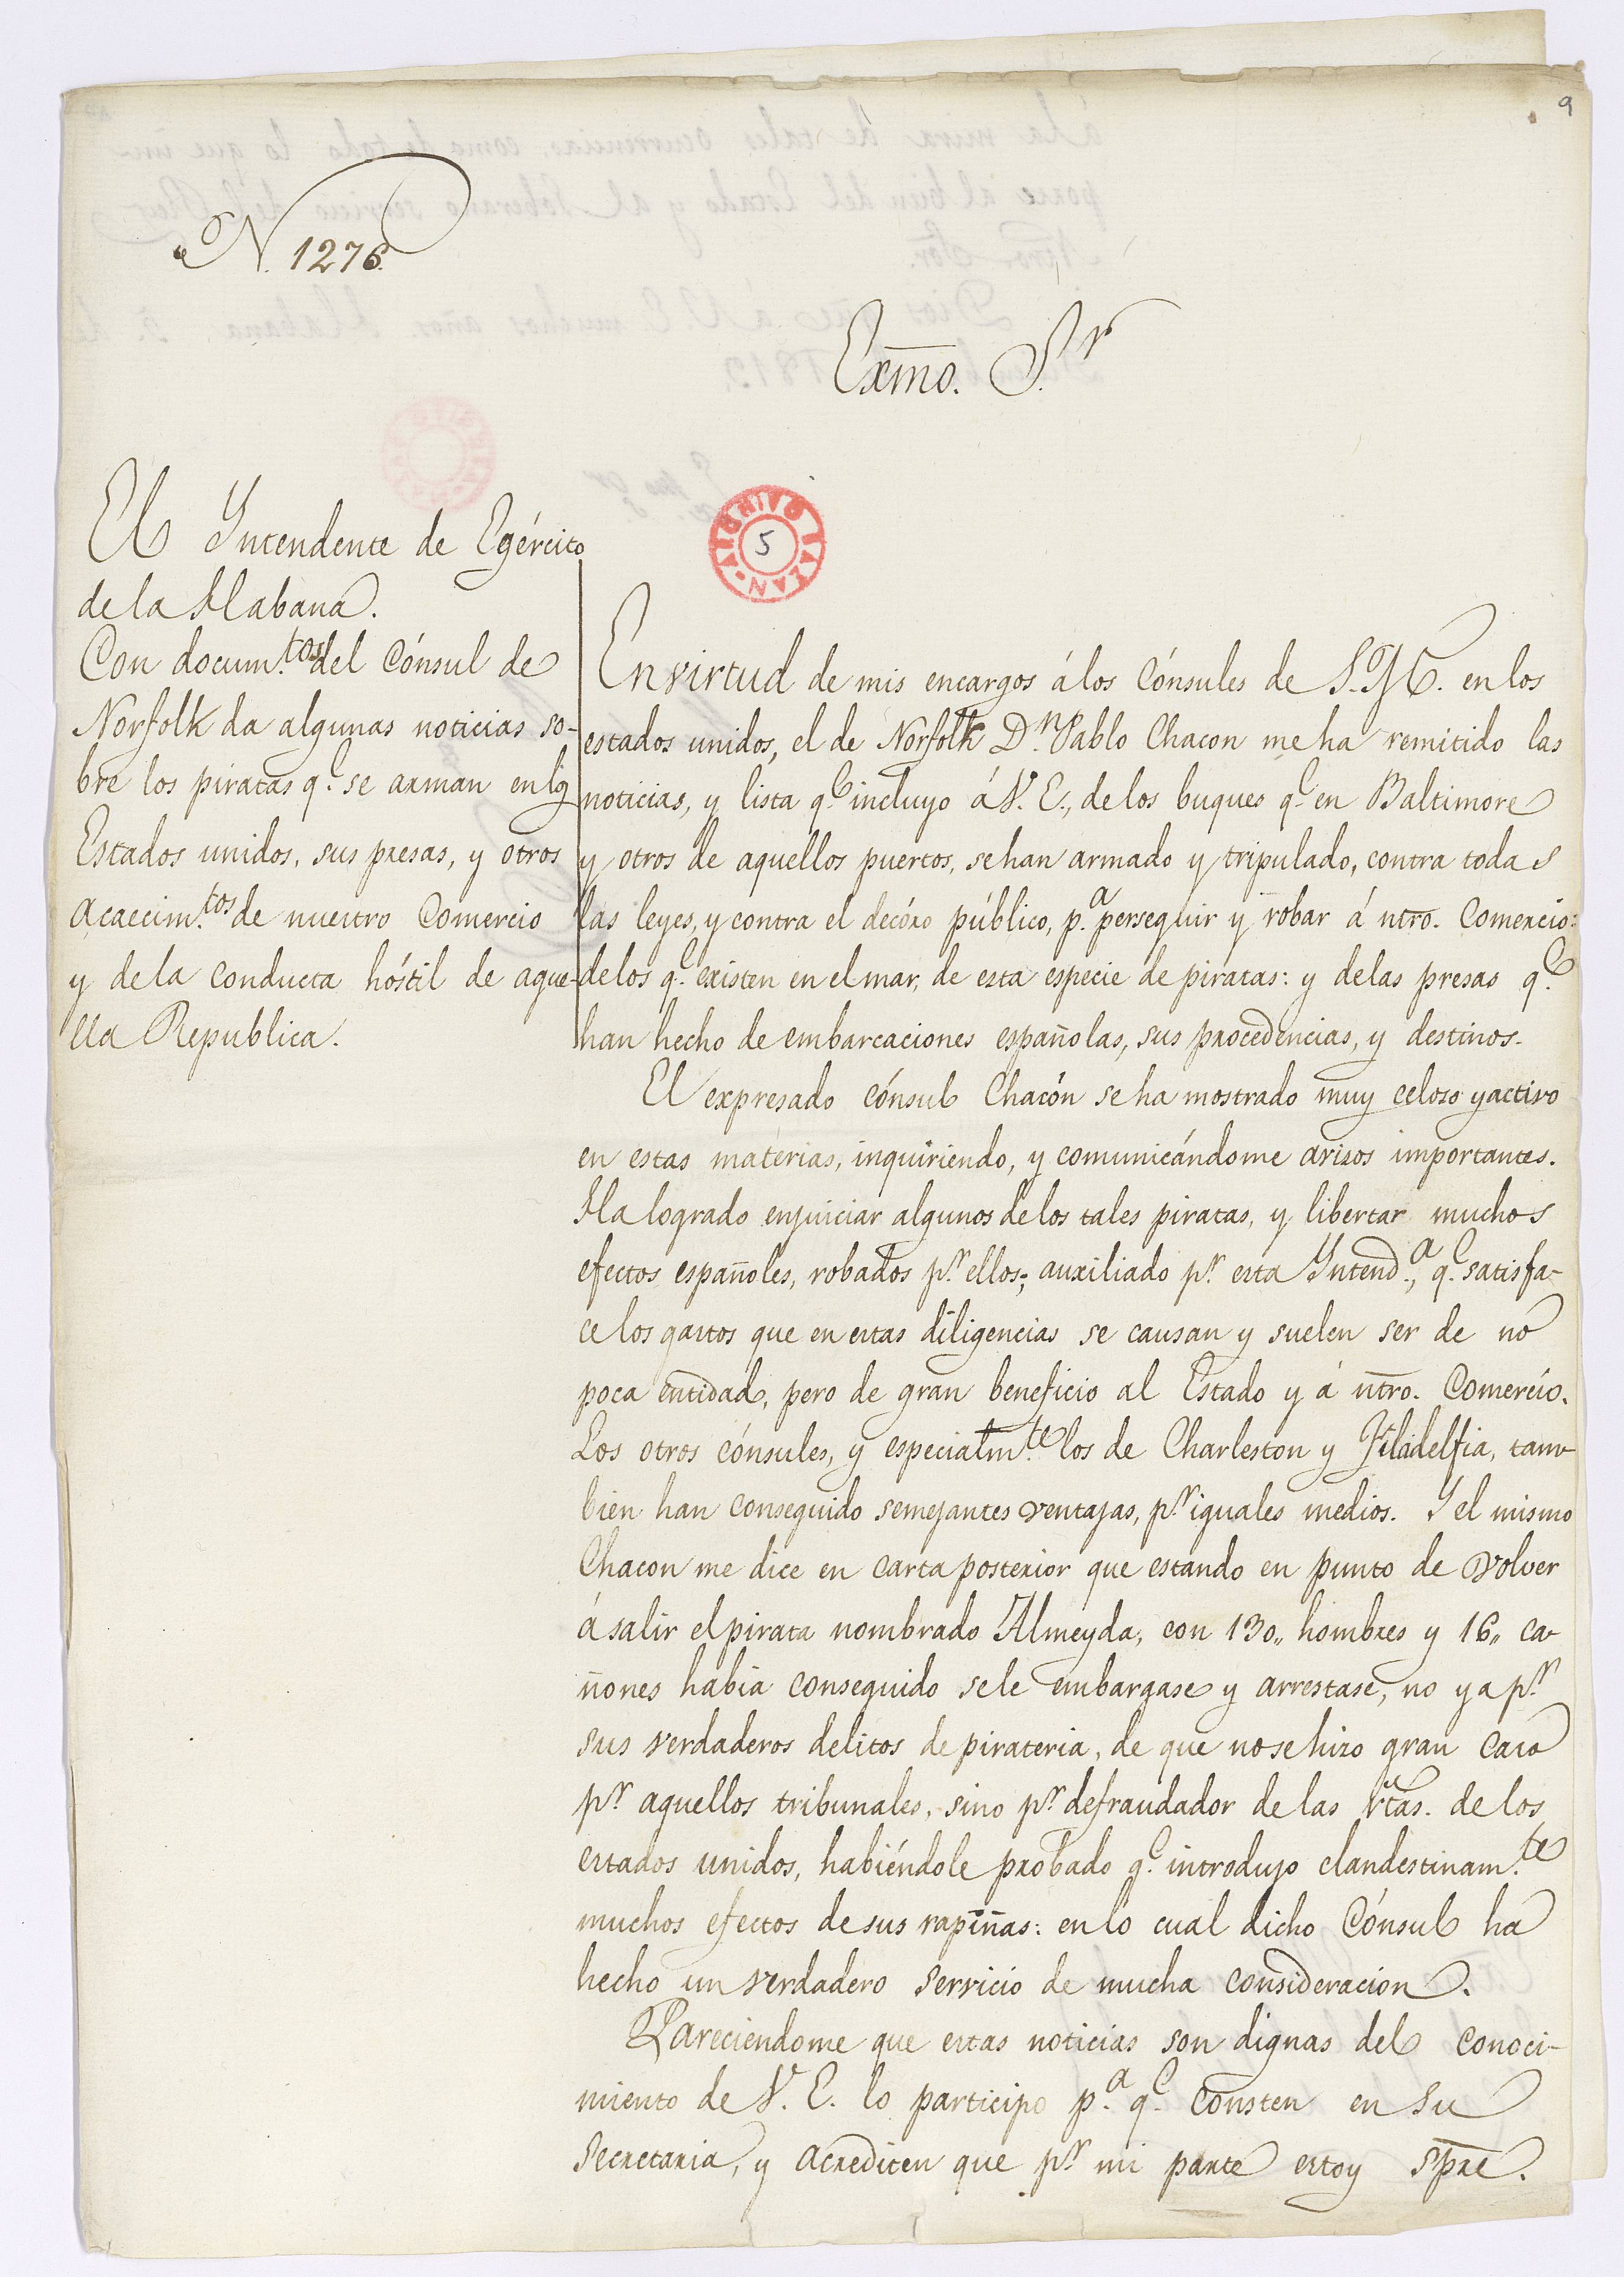 9
N. 1276.
Exmo. S.r
ARCHIVO BAZAN
5
El Yntendente de Egército
de la Habana.
Con docum.tos del Cónsul de
Norfolk da algunas noticias so-
bre los piratas q.e se arman en los
Estados unidos, sus presas, y otros
acaecim.tos de nuestro Comercio
y de la conducta hóstil de aque-
lla Republica.
En virtud de mis encargos á los Cónsules de S. M. en los
estados unidos, el de Norfolk D.n Pablo Chacon me ha remitido las
noticias, y lista q.e incluyo á V. E., de los buques q.e en Baltimore
y otros de aquellos puertos, se han armado y tripulado, contra todas
las leyes, y contra el decóro público, p.a perseguir y robar á ntro. Comercio:
de los q.e existen en el mar, de esta especie de piratas: y de las presas q.e
han hecho de embarcaciones españolas, sus procedencias, y destinos.
El expresado cónsul Chacón se ha mostrado muy celoso y activo
en estas materias, inquiriendo, y comunicándome avisos importantes.
Ha logrado enjuiciar algunos de los tales piratas, y libertar muchos
efectos españoles, robados p.r ellos; auxiliado p.r esta Yntend.a, q.e satisfa-
ce los gastos que en estas diligencias se causan y suelen ser de no
poca entidad, pero de gran beneficio al Estado y á ntro. Comercio.
Los otros cónsules, y especialm.te los de Charleston y Filadelfia, tam-
bien han conseguido semejantes ventajas, p.r iguales medios. Y el mismo
Chacon me dice en carta posterior que estando en punto de volver
á salir el pirata nombrado Almeyda, con 130,, hombres y 16,, ca-
ñones habia conseguido se le embargase y arrestase, no ya p.r
sus verdaderos delitos de pirateria, de que no se hizo gran caso
p.r aquellos tribunales, sino p.r defraudador de las rtas. de los
estados unidos, habiéndole probado q.e introdujo clandestinam.te
muchos efectos de sus rapiñas: en lo cual dicho Cónsul ha
hecho un verdadero servicio de mucha consideracion.
Pareciendome que estas noticias son dignas del conoci-
miento de V. E. lo participo p.a q.e consten en su
secretaria, y acrediten que p.r mi parte estoy spre.